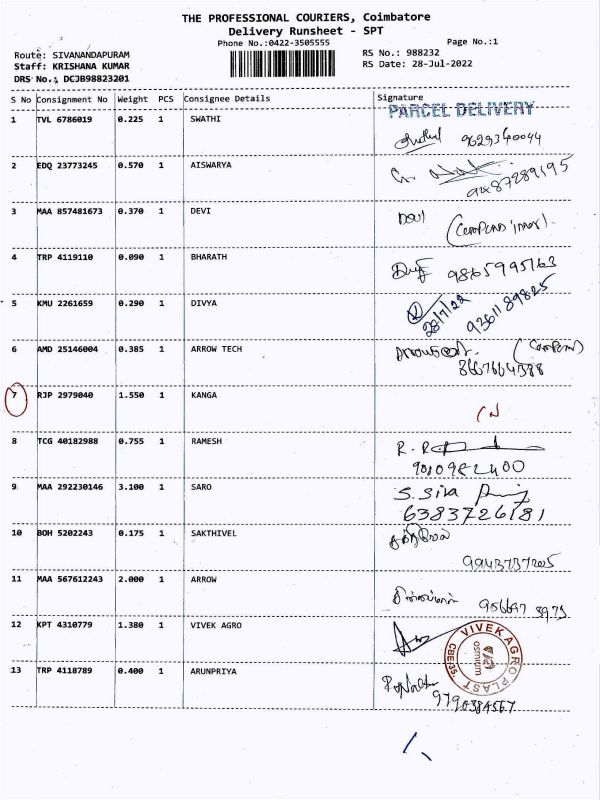 THE PROFESSIONAL COURIERS, Coimbatore
Delivery Runsheet - SPT
Phone No.:0422-3505555
Page No.:1
Route: SIVANANDAPURAM
RS No.: 988232
Staff: KRISHANA KUMAR
RS Date: 28-Jul-2022
DRS No.: DCJB98823201
S No Consignment No Weight PCS Consignee Details Signature
PARCEL DELIVERY
1 TVL 6786019 0.225 1 SWATHI
9629340044
2 EDQ 23773245 0.570 1 AISWARYA
9487289195
3 MAA 857481673 0.370 1 DEVI
4 TRP 4119110 0.090 1 BHARATH
9865995163
5 KMU 2261659 0.290 1 DIVYA
28/7/22
9361189825
6 AMD 25146004 0.385 1 ARROW TECH
8667664388
7 RJP 2979040 1.550 1 KANGA
8 TCG 40182988 0.755 1 RAMESH
9 MAA 292230146 3.100 1 SARO
S. Siva
6383726181
10 BOH 5202243 0.175 1 SAKTHIVEL
சக்திவேல்
11 MAA 567612243 2.000 1 ARROW
12 KPT 4310779 1.380 1 VIVEK AGRO
VIVEK AGRO PLAST
CBE-35.
osmium
13 TRP 4118789 0.400 1 ARUNPRIYA
9790384567